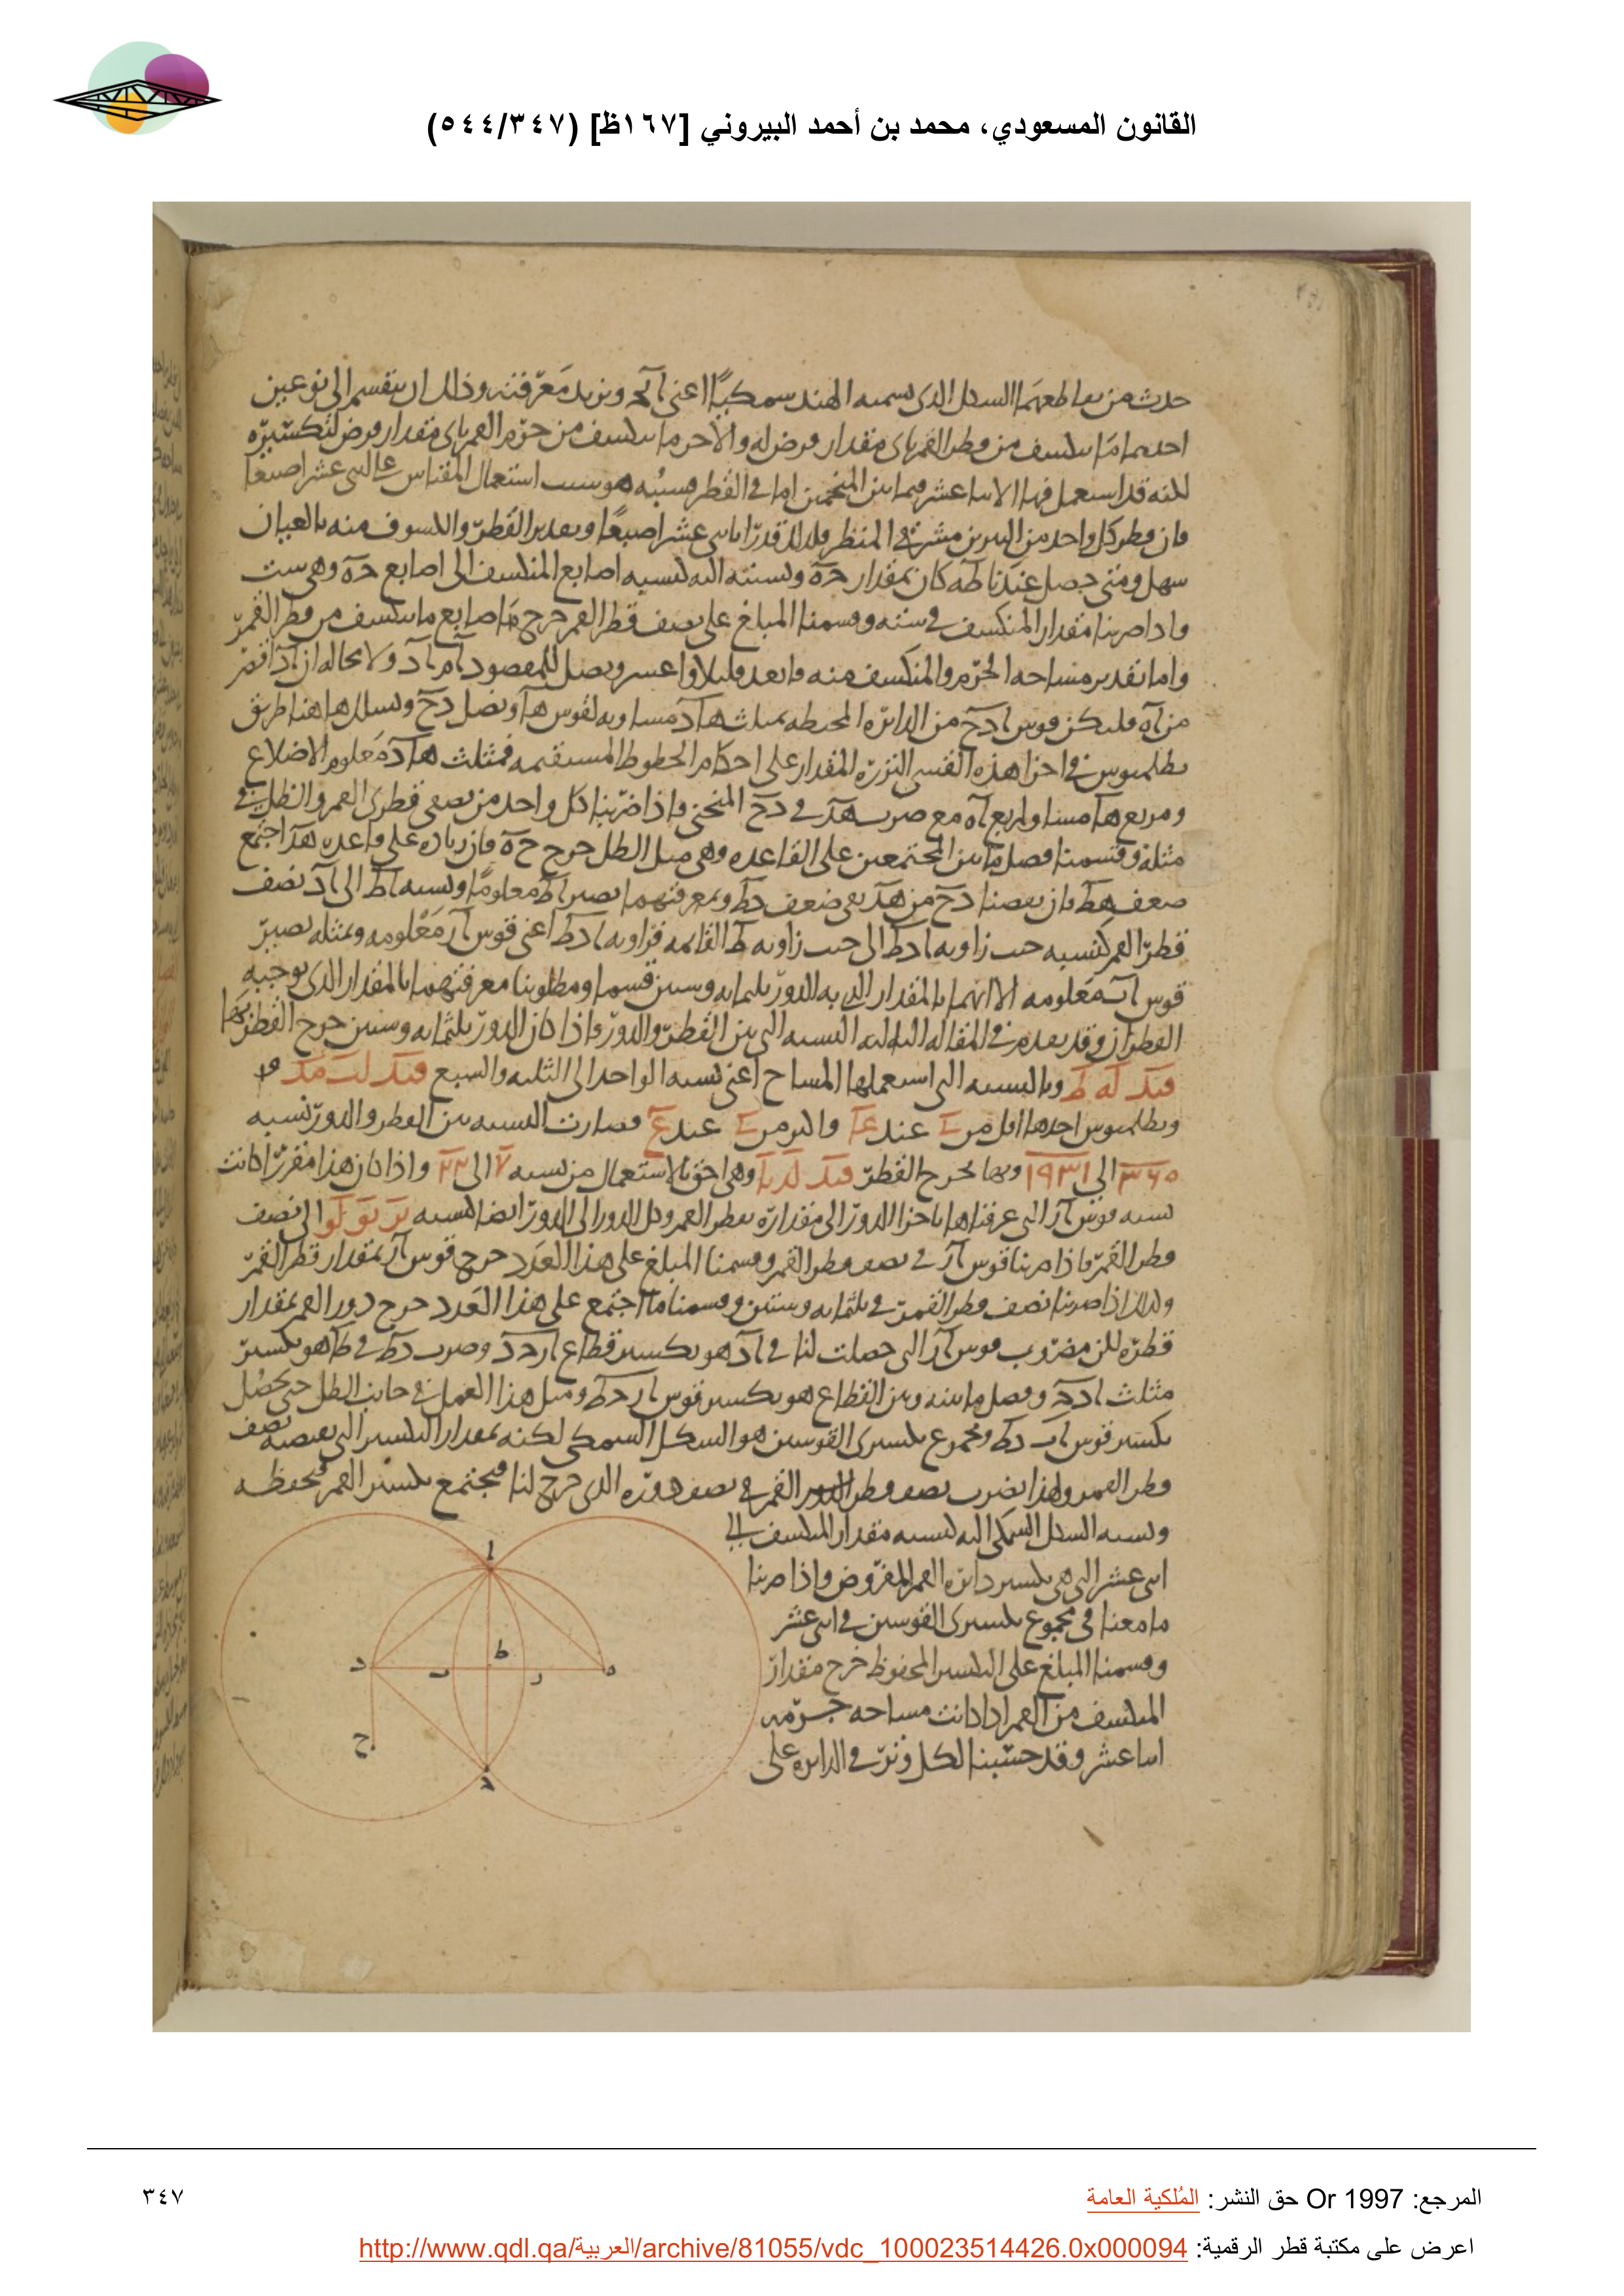 القانون المسعودي، محمد بن أحمد البيروني [١٦٧ظ] (٥٤٤/٣٤٧)
حدث من تقاطعهما الشكل الذى يسميه الهند سمكيًا اعنى ونريد معرفته وذلك ان ينقسم الى نوعين
احدهما ما ينكسف من قطر القمر باى مقدار فرض له والاخر ما ينكسف من جرم القمر باى مقدار فرض لتكسيره
لكنه قد استعمل فيها الاثنا عشر فيما بين المنجمين اما فى القطر فسببه هو سبب استعمال المقياس على اثنى عشر اصبعا
فان قطر كل واحد من النيرين فى المنظر فلذلك قدرا باثنى عشر اصبعًا وتقدير القطر والكسوف منه بالعيان
سهل ومتى حصل عندنا طه كان بمقدار حه ونسبته اليه كنسبه اصابع المنكسف الى اصابع حه وهى ست
فاذا ضربنا مقدار المنكسف فى سته وقسمنا المبلغ على نصف قطر القمر خرج اصابع ما ينكسف من قطر القمر
واما تقدير مساحه الجرم والمنكسف منه فابعد قليلا واعسر ونصل للمقصود اه اد ولا محاله ان اد اقصر
من اه فليكن قوس ادح من الدائره المحيطه بمثلث هاد مساويه لقوس ها ونصل دح ونسلك هاهنا طريق
بطلميوس فى اجزا هذه القسى النزره المقدار على احكام الخطوط المستقيمه فمثلث هاد معلوم الاضلاع
ومربع ها مساو لمربع اد مع ضرب هد فى دح المنحنى فاذا ضربنا كل واحد من نصفى قطرى القمر والظل فى
مثله وقسمنا فضل ما بين المجتمعين على القاعده وهى ميل الظل خرج ده فان زيد على قاعده هد اجتمع
ضعف هط فان نقصنا دح من هد بقى ضعف دط وبمعرفتهما يصير اط معلومًا ونسبه اط الى اد نصف
قطر القمر كنسبه جيب زاويه ادط الى جيب زاويه ط القائمه فزاويه ادط اعنى قوس ار معلومه وبمثله يصير
قوس اب معلومه الا انهما بالمقدار الذى به الدور ثلثمايه وستين قسما ومطلوبنا معرفتهما بالمقدار الذى يوجبه
القطران وقد تقدم فى المقاله الثالثه النسبه التى بين القطر والدور واذا كان الدور ثلثمايه وستين خرج القطر بها
قيد له ط وبالنسبه التى استعملها المساح اعنى نسبه الواحد الى الثلثه والسبع قيد لب مد
وبطلميوس احدها اقل من عند واكثر من عند فصارت النسبه بين القطر والدور نسبه
٣٦٠ الى وبها يخرج القطر وهى احق بالاستعمال من نسبه ٧ الى ٢٢ واذا كان هذا مقررا كانت
نسبه قوس ار التى عرفناها باجزا الدور الى مقداره بقطر القمر وكل الدور الى الدور ايضا كنسبه الى نصف
قطر القمر فاذا ضربنا قوس ار فى نصف قطر القمر وقسمنا المبلغ على هذا العدد خرج قوس ار بمقدار قطر القمر
ولذلك اذا ضربنا نصف قطر القمر فى ثلثمايه وستين وقسمنا ما اجتمع على هذا العدد خرج دور القمر بمقدار
قطره لكن مضروب قوس ار التى حصلت لنا فى اد هو تكسير قطاع ارحد وضرب دط فى طا هو تكسير
مثلث ادح وفضل ما بينه وبين القطاع هو تكسير قوس ار حط ومثل هذا العمل فى جانب الظل حتى يحصل
تكسير قوس اب حط ومجموع تكسيرى القوسين هو الشكل السمكى لكنه بمقدار التكسير الذى يقتضيه نصف
قطر القمر ولهذا نضرب نصف قطر القمر فى نصف دوره الذى خرج لنا فيجتمع تكسير القمر فنحفظه
ونسبه الشكل السمكى اليه كنسبه مقدار المنكسف الى
اثنى عشر التى هى تكسير دائره القمر المفروض فاذا ضربنا
ما معنا فى مجموع تكسيرى القوسين فى اثنى عشر
وقسمنا المبلغ على التكسير المحفوظ خرج مقدار
المنكسف من القمر اذا كانت مساحه جرمه
اثنا عشر وقد حسبنا لكل وتر فى الدائره على
ا
د ب ط ر ه
ح
ح
المرجع: Or 1997 حق النشر: المُلكية العامة
٣٤٧
اعرض على مكتبة قطر الرقمية: http://www.qdl.qa/العربية/archive/81055/vdc_100023514426.0x000094